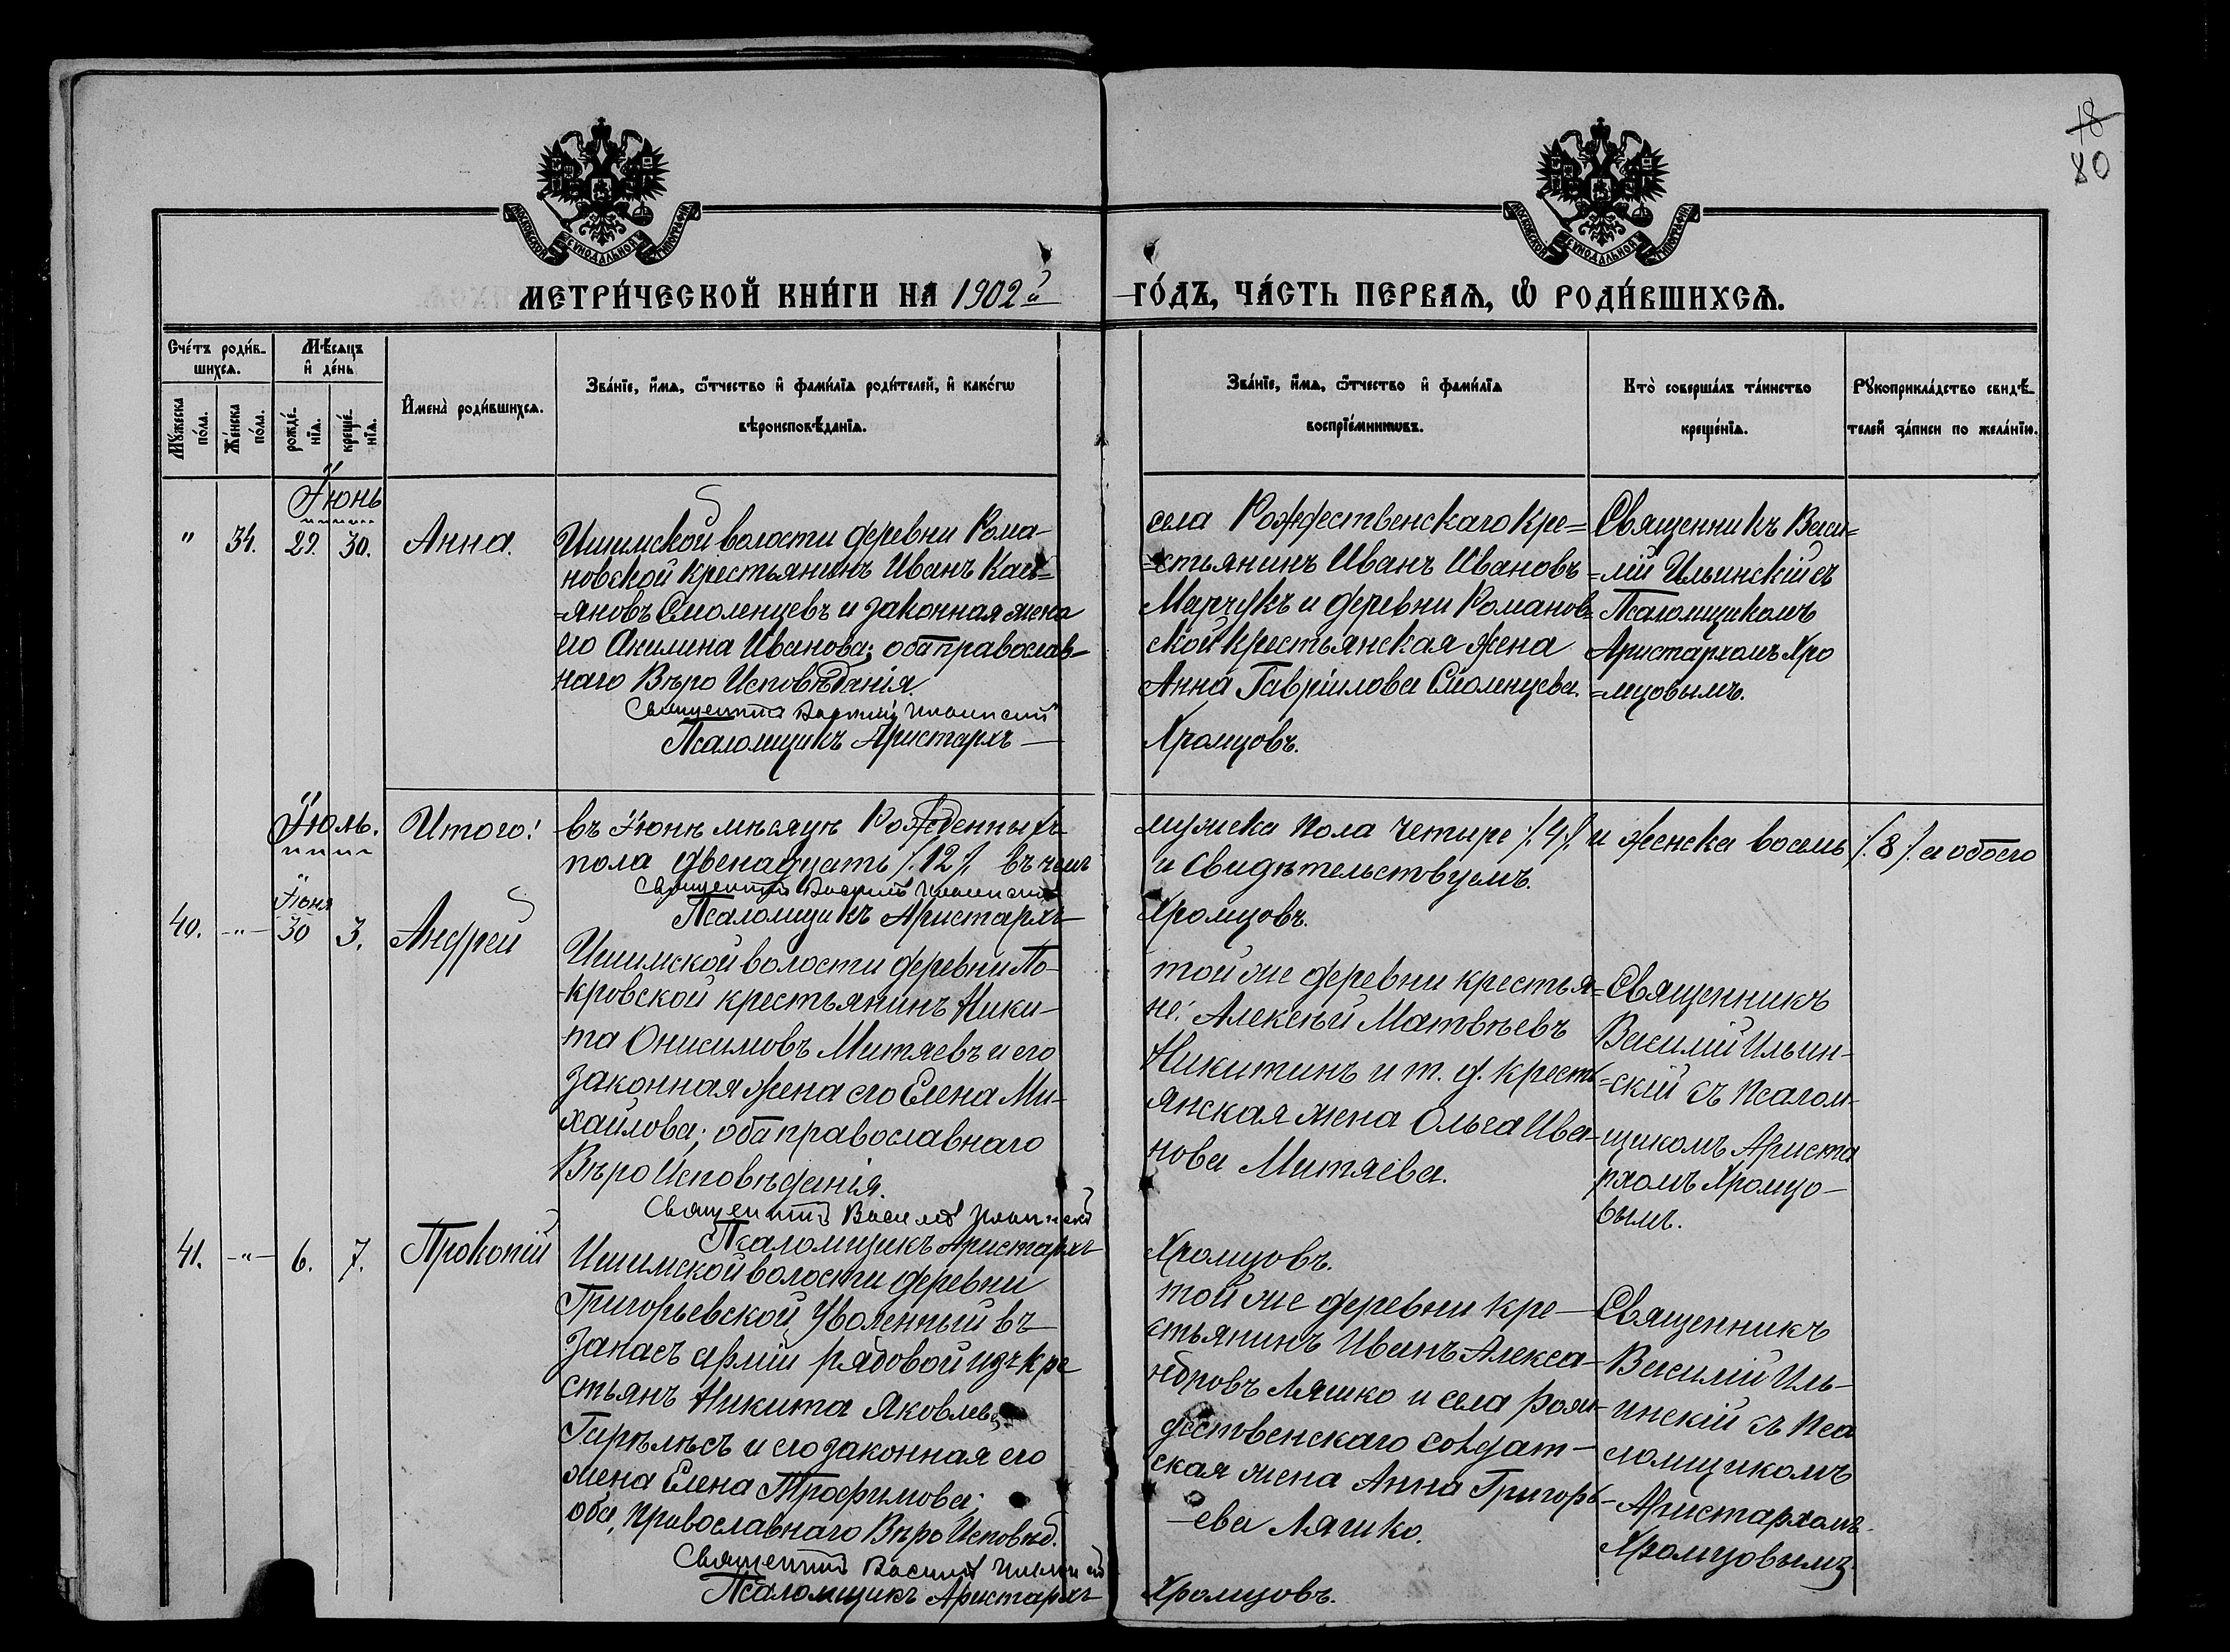 18
80
МОСКОВСКОЙ СѴНОДАЛЬНОЙ ТИПОГРАФІИ
МОСКОВСКОЙ СѴНОДАЛЬНОЙ ТИПОГРАФІИ
МЕТРИ́ЧЕСКОЙ КНИ́ГИ НА 1902й ГО́ДЪ, ЧА́СТЬ ПЕРВАѦ, Ѡ РОДИ́ВШИХСѦ.
Сче́тъ роди́в-
шихсѧ.
Мꙋжеска
по́ла.
Же́нска
по́ла.
Мѣ́сѧцъ
и де́нь
рожде́-
нїѧ.
креще́-
нїѧ.
Имена̀ роди́вшихсѧ.
Зва́нїе, и́мѧ, ѿтчество и фами́лїѧ роди́телей, и како́гѡ
вѣроисповѣ́данїѧ.
Зва́нїе, и́мѧ, ѿтчество и фами́лїѧ
воспрїе́мникѡвъ.
Кто̀ соверша́лъ та́инство
креще́нїѧ.
Рꙋкоприкла́дство свидѣ́-
телей за́писи по жела́нїю.
Іюнь
" 34. 29. 30. Анна.
Ишимской волости деревни Рома-
новской крестьянинъ Иванъ Кась=
=яновъ Смоленцевъ и законная жена
его Акилина Иванова; оба православ-
наго Вѣро Исповѣданія.
Священникъ Василій Ильинскій
Псаломщикъ Аристархъ —
села Рождественскаго Кре=
=стьянинъ Иванъ Ивановъ
Марчукъ и деревни Романов=
ской крестьянская жена
Анна Гавріилова Смоленцева.
Хромцовъ.
Священникъ Васи=
=лій Ильинскій съ
Псаломщикомъ
Аристархомъ Хро
=мцовымъ.
Іюль.
Итого: въ Іюнѣ мѣсяцѣ Рожденныхъ мужска пола четыре /.4/. и женска восемь /.8/. а обоего
пола двенадцать /.12/. въ чемъ и свидѣтельствуемъ.
Священникъ Василій Ильинскій
Псаломщикъ Аристархъ- Хромцовъ.
Іюня
40. -"- 30 3. Андрей
Ишимской волости деревни По-
-кровской крестьянинъ Ники-
та Онисимовъ Митяевъ и его
законная жена его Елена Ми-
хайлова; оба православнаго
Вѣро Исповѣданія.
Священникъ Василій Ильинскій
Псаломщикъ Аристархъ
той же деревни крестья=
не: Алексѣй Матвѣевъ
Никитинъ и т. д. кресть
янская жена Ольга Ива-
нова Митяева.
Хромцовъ.
Священникъ
Василій Ильин-
=скій съ Псалом-
щикомъ Ариста
рхомъ Хромцо-
вымъ.
41. -"- 6. 7. Прокопій
Ишимской волости деревни
Григорьевской Уволенный въ
Запасъ арміи рядовой изъ кре
стьянъ Никита Яковлевъ
и его законная его
жена Елена Трофимова;
оба, Православнаго Вѣро Исповѣд.
Священникъ Василій Ильинскій
Псаломщикъ Аристархъ
той же деревни кре-
стьянинъ Иванъ Алекса-
ндровъ Ляшко и села рож-
дественскаго солдат-
ская жена Анна Григорь-
-ева Ляшко.
Хромцовъ.
Священникъ
Василій Иль-
инскій съ Пса
ломщикомъ
Аристархомъ
Хромцовымъ.